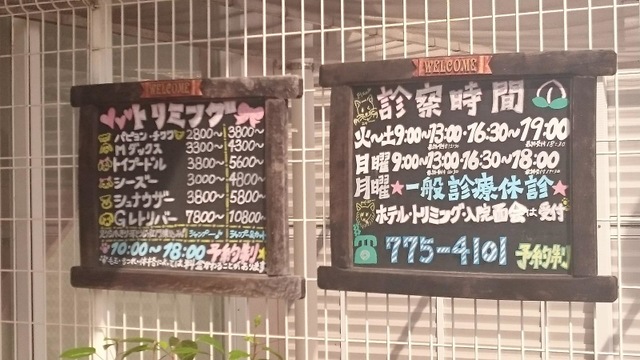 WELCOME
トリミング
パピヨン・チワワ 2800〜 3800〜
Mダックス 3300〜 4300〜
トイプードル 3800〜 5600〜
シーズー 3000〜 4800〜
シュナウザー 3800〜 5800〜
Gレトリバー 7800〜 10800〜
シャンプーのみ シャンプーカット
10:00〜18:00 予約制
WELCOME
診察時間
火〜土 9:00〜13:00・16:30〜19:00
日曜 9:00〜13:00・16:30〜18:00
月曜★一般診療休診★
ホテル・トリミング・入院面会は受付
775-4101 予約制